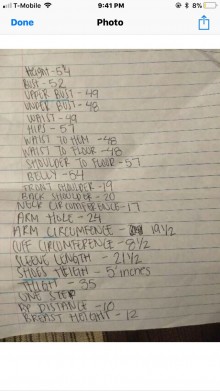 T-Mobile 9:41 PM 8%
Done Photo
HEIGHT - 5'4
BUST - 52
UPPER BUST - 49
UNDER BUST - 48
WAIST - 49
HIPS - 57
WAIST TO HEM - 48
WAIST TO FLOOR - 48
SHOULDER TO FLOOR - 57
BELLY - 54
FRONT SHOULDER - 19
BACK SHOULDER - 20
NECK CIRCUMFERENCE - 17
ARM HOLE - 24
ARM CIRCUMFENCE - 19 1/2
CUFF CIRCUMFERENCE - 8 1/2
SLEEVE LENGTH - 21 1/2
SHOES HEIGTH - 5 inches
THIGHT - 35
ONE STEP
BP DISTANCE - 10
BREAST HEIGHT - 12